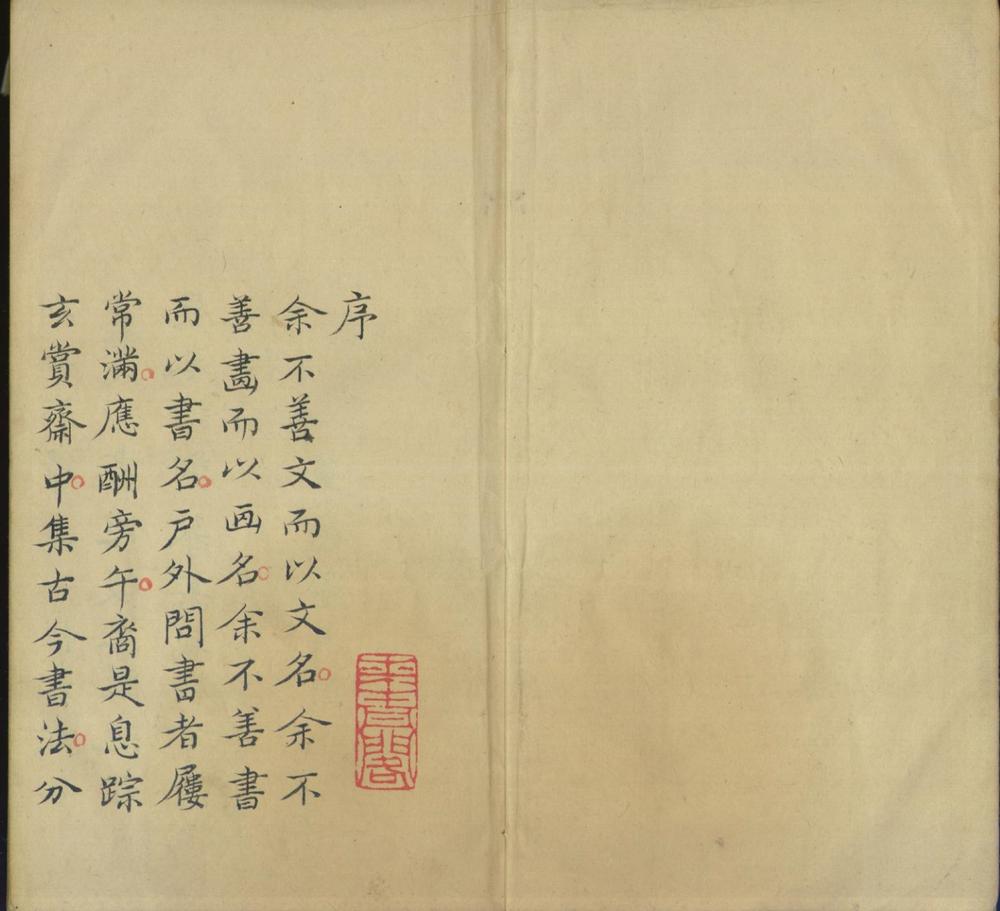 序
余不善文而以文名余不
善畫而以画名余不善書
而以書名户外問書者屨
常滿應酬旁午是息踪
玄賞齋中集古今書法分